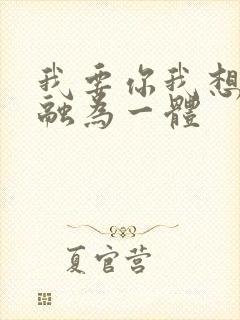 我要你我想
融為一體
夏官营